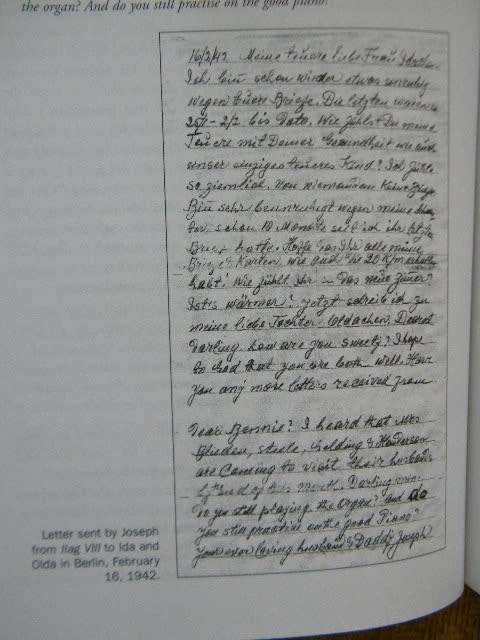 the organ? And do you still practise on the good piano?
16/2/42 Meine teuere liebe Frau
Ich bin schon wieder etwas unruhig
wegen Euere Briefe. Die letzten waren
bis Dato. Wie fühlst Du meine
Teuere mit Deiner Gesundheit wie auch
unser einziges teueres Kind? Ich fühle
so ziemlich. Von niemandem keine
Bin sehr beunruhigt wegen meine
schon 10 Monate seit ich ihr letzte
Brief hatte. Hoffe das Ihr alle meine
Briefe & Karten, wie auch die 20 Rm erhalten
habt. Wie fühlt Ihr in das neue Zimer?
Ist's wärmer? Jetzt schreib ich zu
meine liebe Tochter Oldachen. Dearest
Darling how are you sweety? I hope
to God that you are both well. Have
you any more letters received from
Dear Bennie? I heard that Mrs
Steele, & Henderson
are coming to visit their husbands
end of this month. Darling mine
do you still playing the organ? and do
you still practise on the good Piano?
Your ever loving husband & Daddy Joseph
Letter sent by Joseph
from Ilag VIII to Ida and
Olda in Berlin, February
16, 1942.